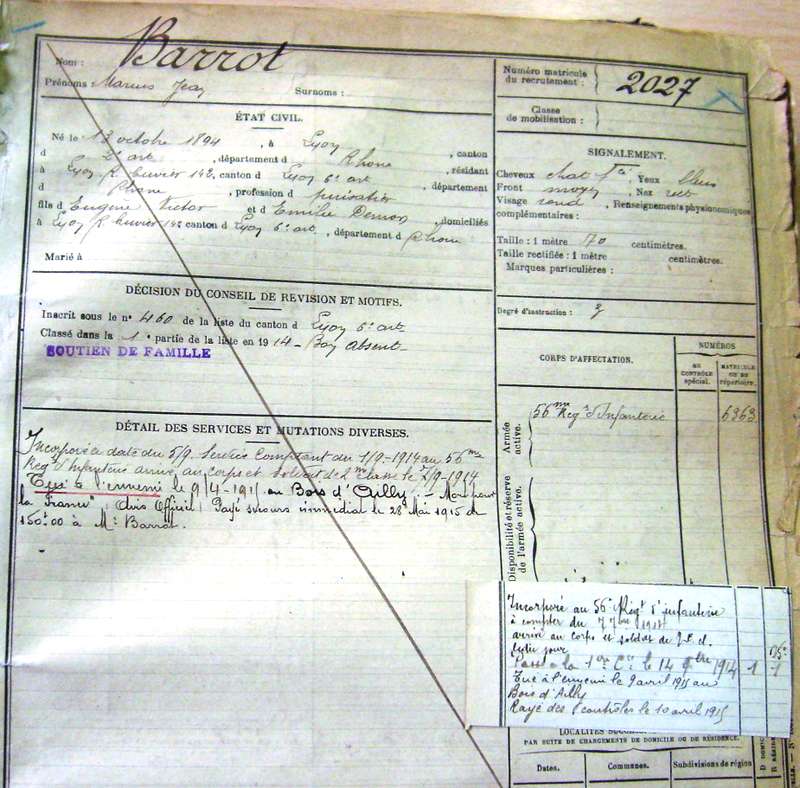 Nom : Barrot
Prénoms : Marius Jean Surnoms :
Numéro matricule du recrutement : 2027
Classe de mobilisation :
ÉTAT CIVIL.
Né le 13 octobre 1894, à Lyon, canton
d 2e art, département d Rhone, résidant
à Lyon R. Cuvier 142, canton d Lyon 6e art, département
d Rhone, profession d
fils d Eugène Victor et d Emilie, domiciliés
à Lyon R. Cuvier 142 canton d Lyon 6e art, département d Rhone
Marié à
SIGNALEMENT.
Cheveux chat fcé, Yeux bleus
Front moyen, Nez rect
Visage rond, Renseignements physionomiques
complémentaires :
Taille : 1 mètre 70 centimètres.
Taille rectifiée : 1 mètre centimètres.
Marques particulières :
Degré d'instruction : 3
DÉCISION DU CONSEIL DE REVISION ET MOTIFS.
Inscrit sous le n° 460 de la liste du canton d Lyon 6e art
Classé dans la 1e partie de la liste en 1914 - Bon Absent
SOUTIEN DE FAMILLE
CORPS D'AFFECTATION.
NUMÉROS
AU CONTRÔLE spécial.
MATRICULE OU DU répertoire.
Armée active.
56me Regt d'Infanterie 6363
Disponibilité et réserve de l'armée active.
DÉTAIL DES SERVICES ET MUTATIONS DIVERSES.
Incorporé à dater du 5/9. Services Comptant du 1/9-1914 au 56me
Regt d'Infanterie arrivé au corps et soldat de 2me classe le 7/9-1914
Tué à l'ennemi le 9/4-1915 au Bois d'Ailly. - Mort pour
la France" (Avis Officiel) Payé secours immédiat le 28 Mai 1915 de
150f00 à Mr Barrot.
Incorporé au 56e Régt d'infanterie
à compter du 7 7bre 1914
arrivé au corps et soldat de 2e cl.
ledit jour
Passé à la 1ere Cie le 14 9bre 1914
Tué à l'ennemi le 9 avril 1915 au
Bois d'Ailly
Rayé des contrôles le 10 avril 1915
LOCALITÉS
PAR SUITE DE CHANGEMENTS DE DOMICILE OU DE RÉSIDENCE.
Dates. Communes. Subdivisions de région